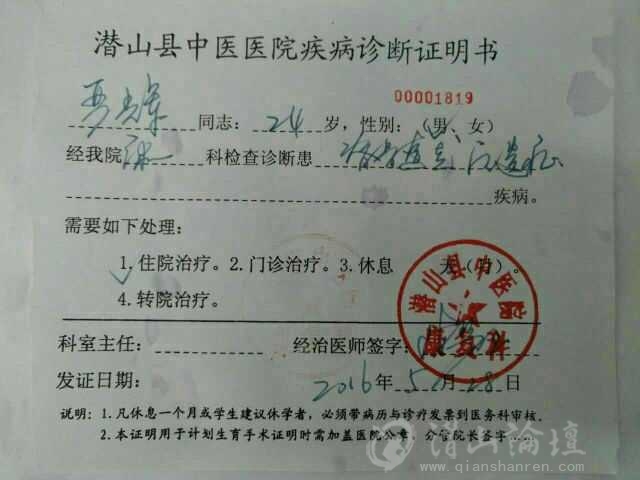 潜山县中医医院疾病诊断证明书
00001819
同志: 24 岁,性别:(男、女)
经我院 科检查诊断患 后遗症
疾病。
需要如下处理:
1.住院治疗。2.门诊治疗。3.休息 天(月)。
4.转院治疗。
潜山县中医院
科室主任: 经治医师签字:
发证日期: 2016 年 5 月 28 日
说明:1.凡休息一个月或学生建议休学者,必须带病历与诊疗发票到医务科审核。
2.本证明用于计划生育手术证明时需加盖医院公章,分管院长签字……
潜山论坛
www.qianshanren.com